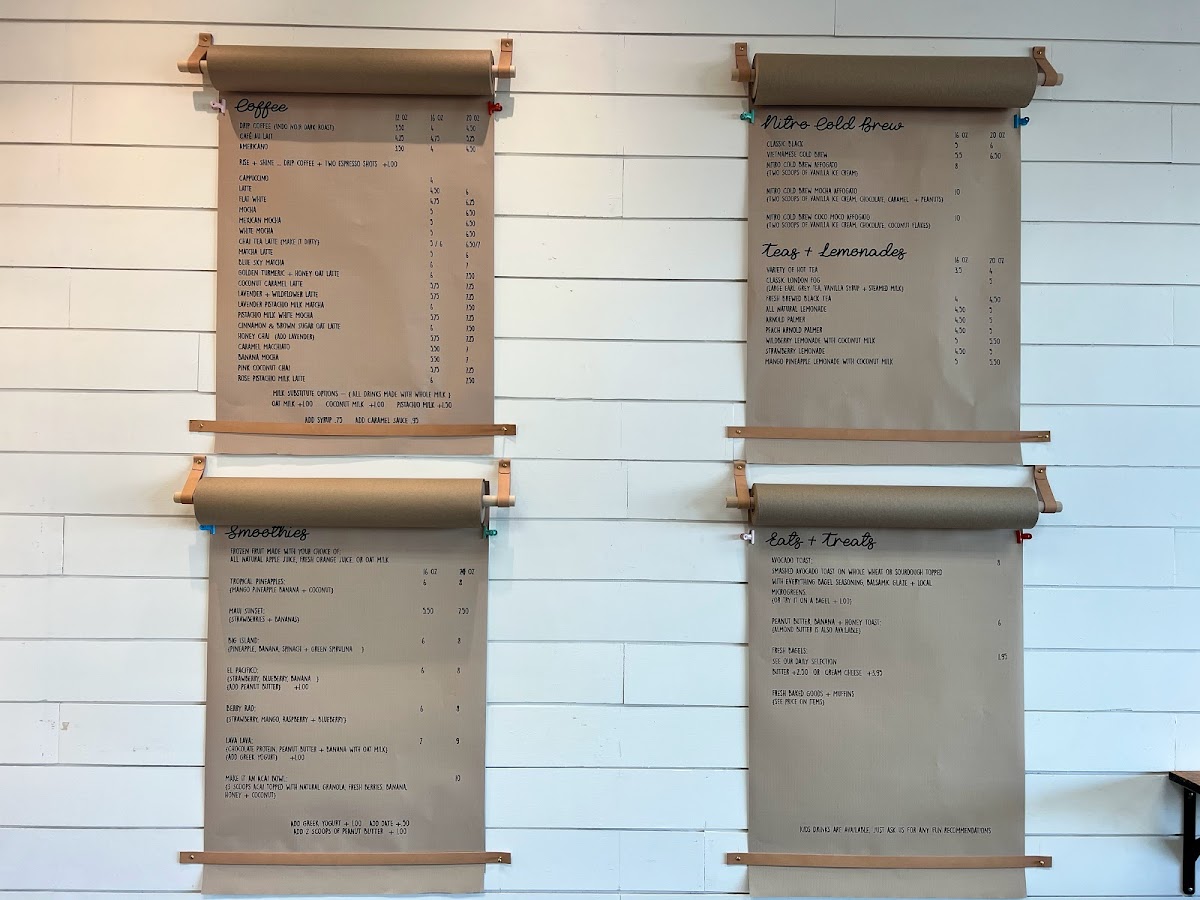 Coffee
12 OZ 16 OZ 20 OZ
DRIP COFFEE (INDO NO.9 DARK ROAST) 3.50 4 4.50
CAFÉ AU LAIT 4.25 4.75 5.25
AMERICANO 3.50 4 4.50
RISE + SHINE ... DRIP COFFEE + TWO ESPRESSO SHOTS +1.00
CAPPUCCINO 4
LATTE 4.50 6
FLAT WHITE 4.75 6.25
MOCHA 5 6.50
MEXICAN MOCHA 5 6.50
WHITE MOCHA 5 6.50
CHAI TEA LATTE (MAKE IT DIRTY) 5 / 6 6.50/7
MATCHA LATTE 5 6
BLUE SKY MATCHA 6 7
GOLDEN TURMERIC + HONEY OAT LATTE 6 7.50
COCONUT CARAMEL LATTE 5.75 7.25
LAVENDER + WILDFLOWER LATTE 5.75 7.25
LAVENDER PISTACHIO MILK MATCHA 6 7.50
PISTACHIO MILK WHITE MOCHA 5.75 7.25
CINNAMON & BROWN SUGAR OAT LATTE 6 7.50
HONEY CHAI (ADD LAVENDER) 5.75 7.25
CARAMEL MACCHIATO 5.50 7
BANANA MOCHA 5.50 7
PINK COCONUT CHAI 5.75 7.25
ROSE PISTACHIO MILK LATTE 6 7.50
MILK SUBSTITUTE OPTIONS - ( ALL DRINKS MADE WITH WHOLE MILK )
OAT MILK +1.00 COCONUT MILK +1.00 PISTACHIO MILK +1.50
ADD SYRUP .75 ADD CARAMEL SAUCE .95
Nitro Cold Brew
16 OZ 20 OZ
CLASSIC BLACK 5 6
VIETNAMESE COLD BREW 5.5 6.50
NITRO COLD BREW AFFOGATO 8
(TWO SCOOPS OF VANILLA ICE CREAM)
NITRO COLD BREW MOCHA AFFOGATO 10
(TWO SCOOPS OF VANILLA ICE CREAM, CHOCOLATE, CARAMEL + PEANUTS)
NITRO COLD BREW COCO MOCO AFFOGATO 10
(TWO SCOOPS OF VANILLA ICE CREAM, CHOCOLATE, COCONUT FLAKES)
Teas + Lemonades
16 OZ 20 OZ
VARIETY OF HOT TEA 3.5 4
CLASSIC LONDON FOG 5
(LARGE EARL GREY TEA, VANILLA SYRUP + STEAMED MILK) 5
FRESH BREWED BLACK TEA 4 4.50
ALL NATURAL LEMONADE 4.50 5
ARNOLD PALMER 4.50 5
PEACH ARNOLD PALMER 4.50 5
WILDBERRY LEMONADE WITH COCONUT MILK 5 5.50
STRAWBERRY LEMONADE 4.50 5
MANGO PINEAPPLE LEMONADE WITH COCONUT MILK 5 5.50
Smoothies
FROZEN FRUIT MADE WITH YOUR CHOICE OF:
ALL NATURAL APPLE JUICE, FRESH ORANGE JUICE, OR OAT MILK
16 OZ 20 OZ
TROPICAL PINEAPPLES: 6 8
(MANGO PINEAPPLE BANANA + COCONUT)
MAUI SUNSET: 5.50 7.50
(STRAWBERRIES + BANANAS)
BIG ISLAND: 6 8
(PINEAPPLE, BANANA, SPINACH + GREEN SPIRULINA )
EL PACIFICO: 6 8
(STRAWBERRY, BLUEBERRY, BANANA )
(ADD PEANUT BUTTER) +1.00
BERRY RAD: 6 8
(STRAWBERRY, MANGO, RASPBERRY + BLUEBERRY)
LAVA LAVA: 7 9
(CHOCOLATE PROTEIN, PEANUT BUTTER + BANANA WITH OAT MILK)
(ADD GREEK YOGURT) +1.00
MAKE IT AN ACAI BOWL: 10
(3 SCOOPS ACAI TOPPED WITH NATURAL GRANOLA, FRESH BERRIES, BANANA,
HONEY + COCONUT)
ADD GREEK YOGURT + 1.00 ADD DATE +.50
ADD 2 SCOOPS OF PEANUT BUTTER + 1.00
Eats + Treats
AVOCADO TOAST: 8
SMASHED AVOCADO TOAST ON WHOLE WHEAT OR SOURDOUGH TOPPED
WITH EVERYTHING BAGEL SEASONING, BALSAMIC GLAZE + LOCAL
MICROGREENS.
(OR TRY IT ON A BAGEL + 1.00)
PEANUT BUTTER, BANANA + HONEY TOAST: 6
(ALMOND BUTTER IS ALSO AVAILABLE)
FRESH BAGELS: 1.95
SEE OUR DAILY SELECTION
BUTTER +2.50 OR CREAM CHEESE +3.95
FRESH BAKED GOODS + MUFFINS
(SEE PRICE ON ITEMS)
KIDS DRINKS ARE AVAILABLE, JUST ASK US FOR ANY FUN RECOMMENDATIONS